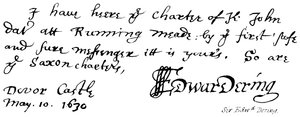 I have heere yᵉ charter of K. John
dat att Running meade: by yᵉ first safe
and sure messenger itt is your's. So are
yᵉ Saxon charters,
Dover Castle
May. 10. 1630
Edward Dering
Sir Edwᵈ Dering.